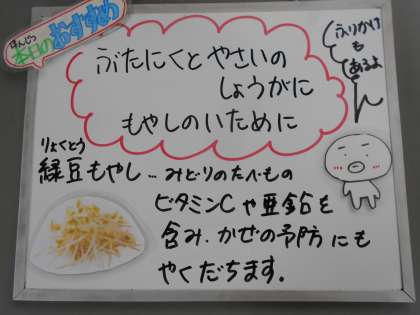 ほんじつ
本日のおすすめ
ぶたにくとやさいの
しょうがに
もやしのいために
ふりかけ
も
あるよ
りょくとう
緑豆もやし…みどりのたべもの
ビタミンCや亜鉛を
含み、かぜの予防にも
やくだちます。